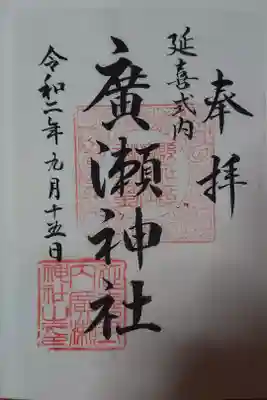 奉拝
延喜式内
廣瀬神社
令和二年九月十五日